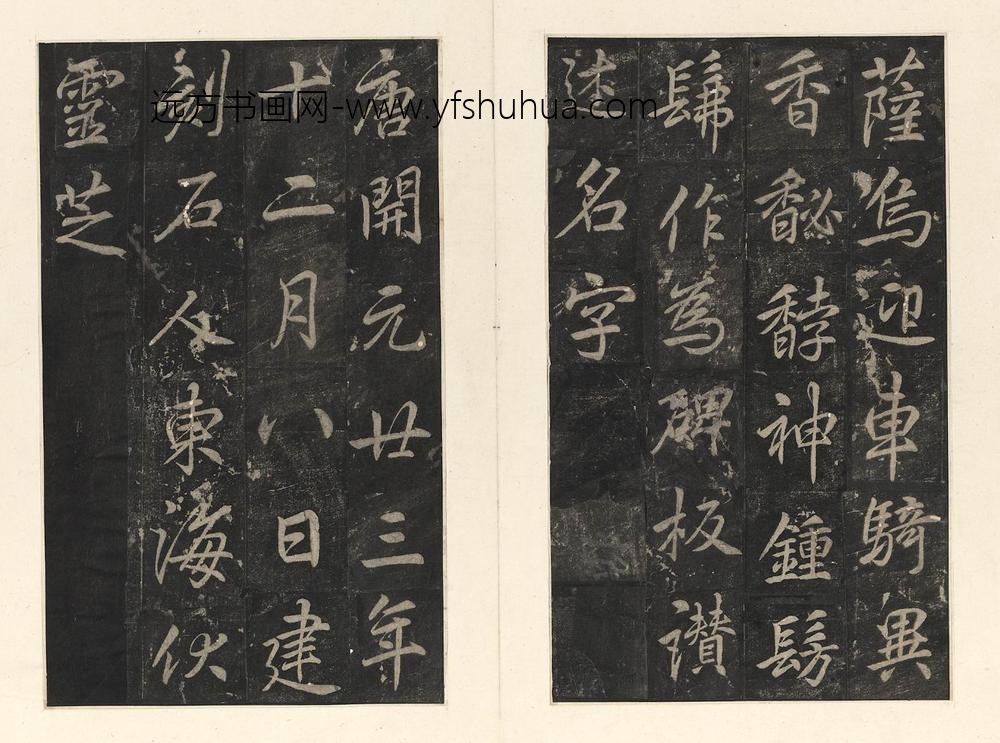 薩為迎車騎異
香馝馞神鍾髣
髴作為碑板讃
述名字
唐開元廿三年
十二月八日建
刻石人東海伏
靈芝
远方书画网-www.yfshuhua.com